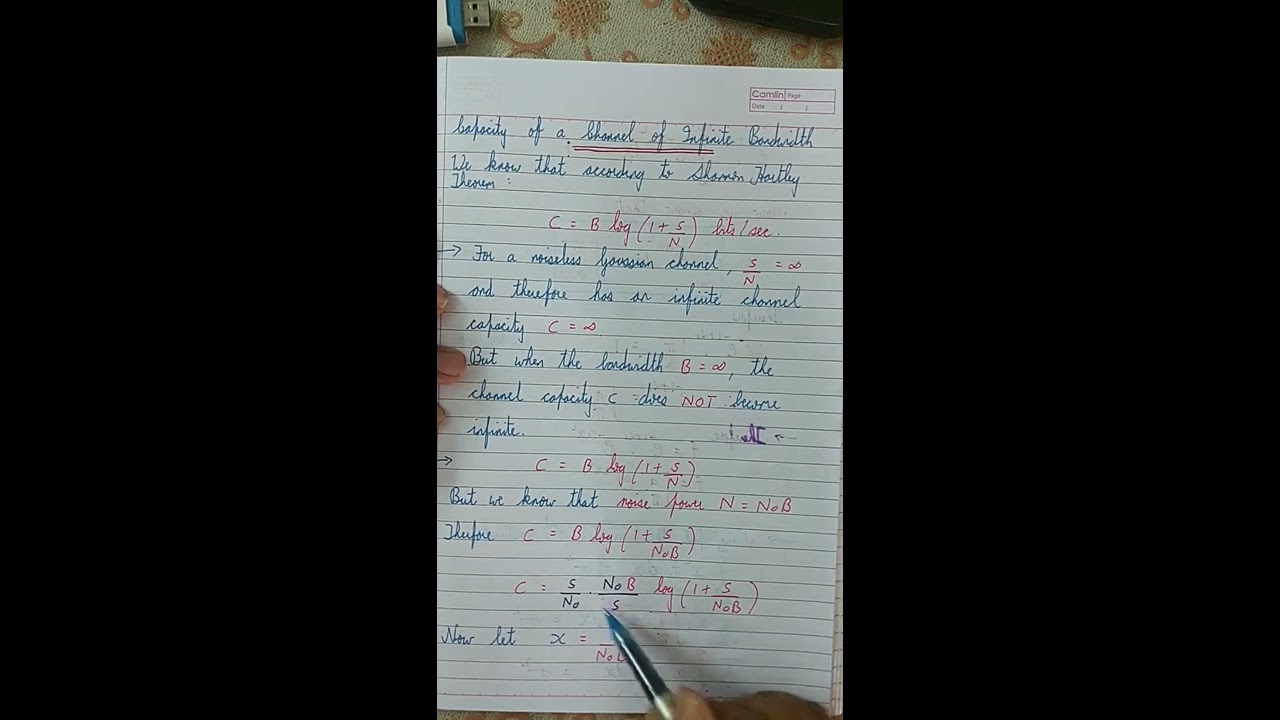 Camlin Page
Date / /
Capacity of a Channel of Infinite Bandwidth
We know that according to Shannon Hartley
Theorem :
C = B log (1 + S/N) bits / sec.
→ For a noiseless Gaussian channel, S/N = ∞
and therefore has an infinite channel
capacity C = ∞
But when the bandwidth B = ∞, the
channel capacity C does NOT become
infinite.
→ C = B log (1 + S/N)
But we know that noise power N = N₀B
Therfore C = B log (1 + S/N₀B)
C = S/N₀ · N₀B/S log (1 + S/N₀B)
Now let x =